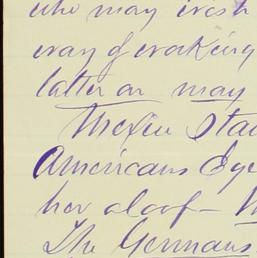 who may wish
way of working
latter as may
Mexico Stan
Americans Eye
her aloof – W
The Germans